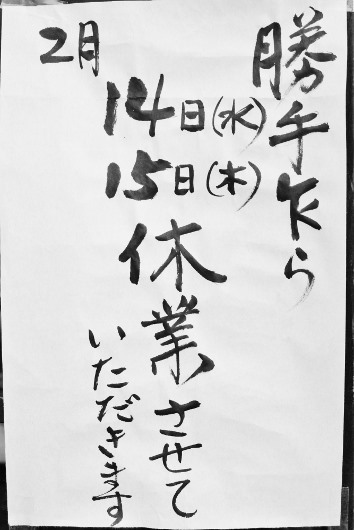 勝手乍ら
2月
14日(水)
15日(木)
休業させて
いただきます